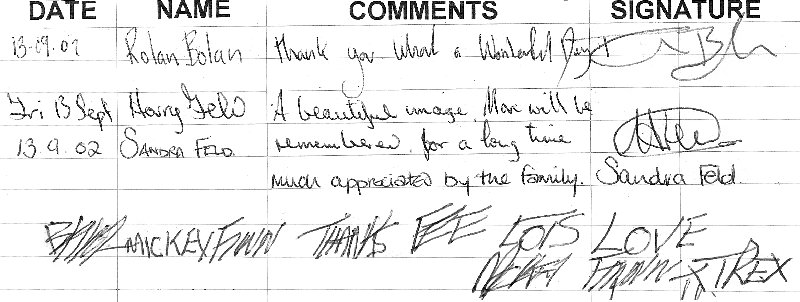 DATE NAME COMMENTS SIGNATURE
13-09.02 Rolan Bolan Thank you what a Wonderful
Fri 13 Sept Harry Feld A beautiful image, Marc will be
13 9.02 SANDRA FELD. remembered for a long time
much appreciated by the family. Sandra Feld
MICKEY FINN THANKS FEE LOTS LOVE
MICKEY FINN - T REX